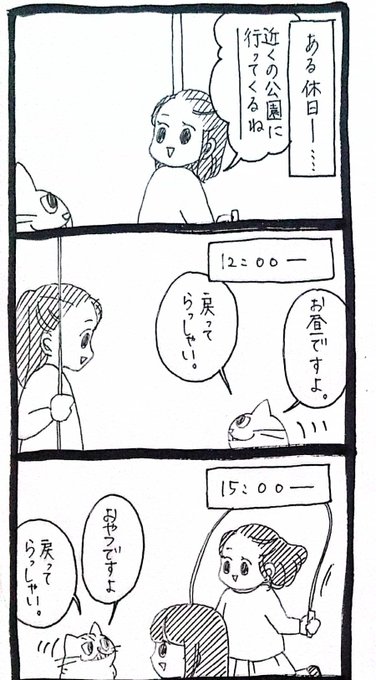 ある休日ー……
近くの公園に
行ってくるね
12:00ー
お昼ですよ。
戻って
らっしゃい。
15:00ー
おやつですよ
戻って
らっしゃい。